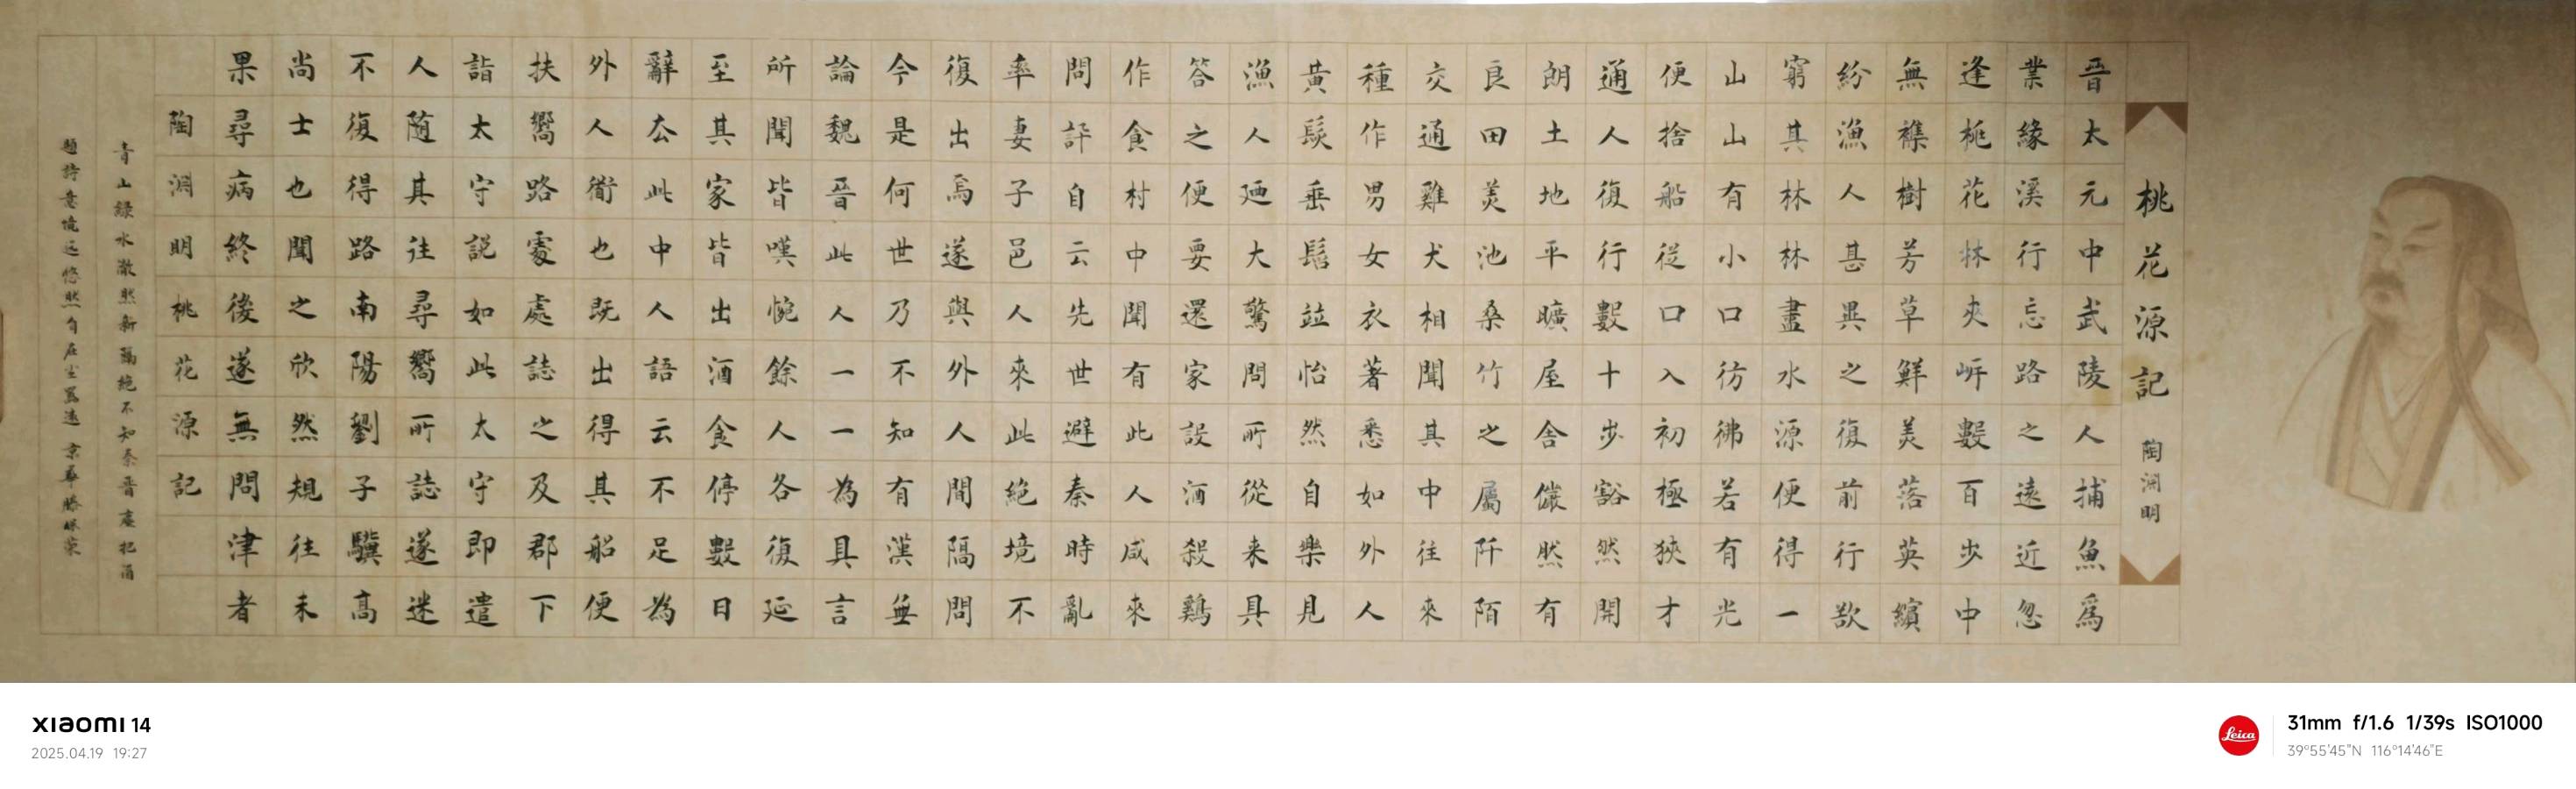 桃花源記 陶渊明
晋太元中武陵人捕魚爲
業緣溪行忘路之遠近忽
逢桃花林夾岍數百步中
無襍樹芳草鮮美落英繽
紛漁人甚異之復前行欲
窮其林林盡水源便得一
山山有小口彷彿若有光
便捨船從口入初極狹才
通人復行數十步豁然開
朗土地平曠屋舍儼然有
良田美池桑竹之屬阡陌
交通雞犬相聞其中往來
種作男女衣著悉如外人
黃髮垂髫竝怡然自樂見
漁人廼大驚問所從来具
答之便要還家設酒殺鷄
作食村中聞有此人咸來
問訊自云先世避秦時亂
率妻子邑人來此絕境不
復出焉遂與外人間隔問
今是何世乃不知有漢無
論魏晉此人一一為具言
所聞皆嘆惋餘人各復延
至其家皆出酒食停數日
辭去此中人語云不足為
外人衜也既出得其船便
扶嚮路處處誌之及郡下
詣太守説如此太守即遣
人隨其往尋嚮所誌遂迷
不復得路南陽劉子驥高
尚士也聞之欣然規往未
果尋病終後遂無問津者
陶渊明桃花源記
青山緑水澈然新隔絶不知秦晋處把酒
題詩意境远悠然自在尘嚣遠 京華滕
XIAOMI 14
2025.04.19 19:27
Leica
31mm f/1.6 1/39s ISO1000
39°55'45"N 116°14'46"E